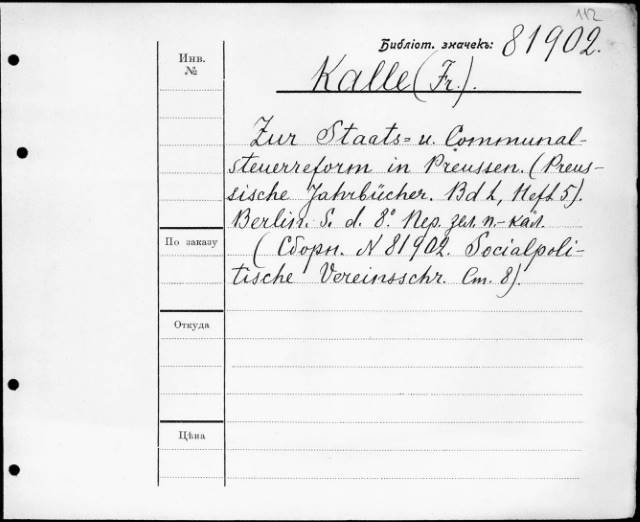 112
Библіот. значекъ: 81902.
Инв.
№
Kalle (Fr.).
Zur Staats= u. Communal-
steuerreform in Preussen. (Preus-
sische Jahrbücher. Bd L, Heft 5).
Berlin. S. d. 8º. Пер. зел. п.-кал.
По заказу
(Сборн. N 81902. Socialpoli-
tische Vereinsschr. Ст. 8).
Откуда
Цѣна